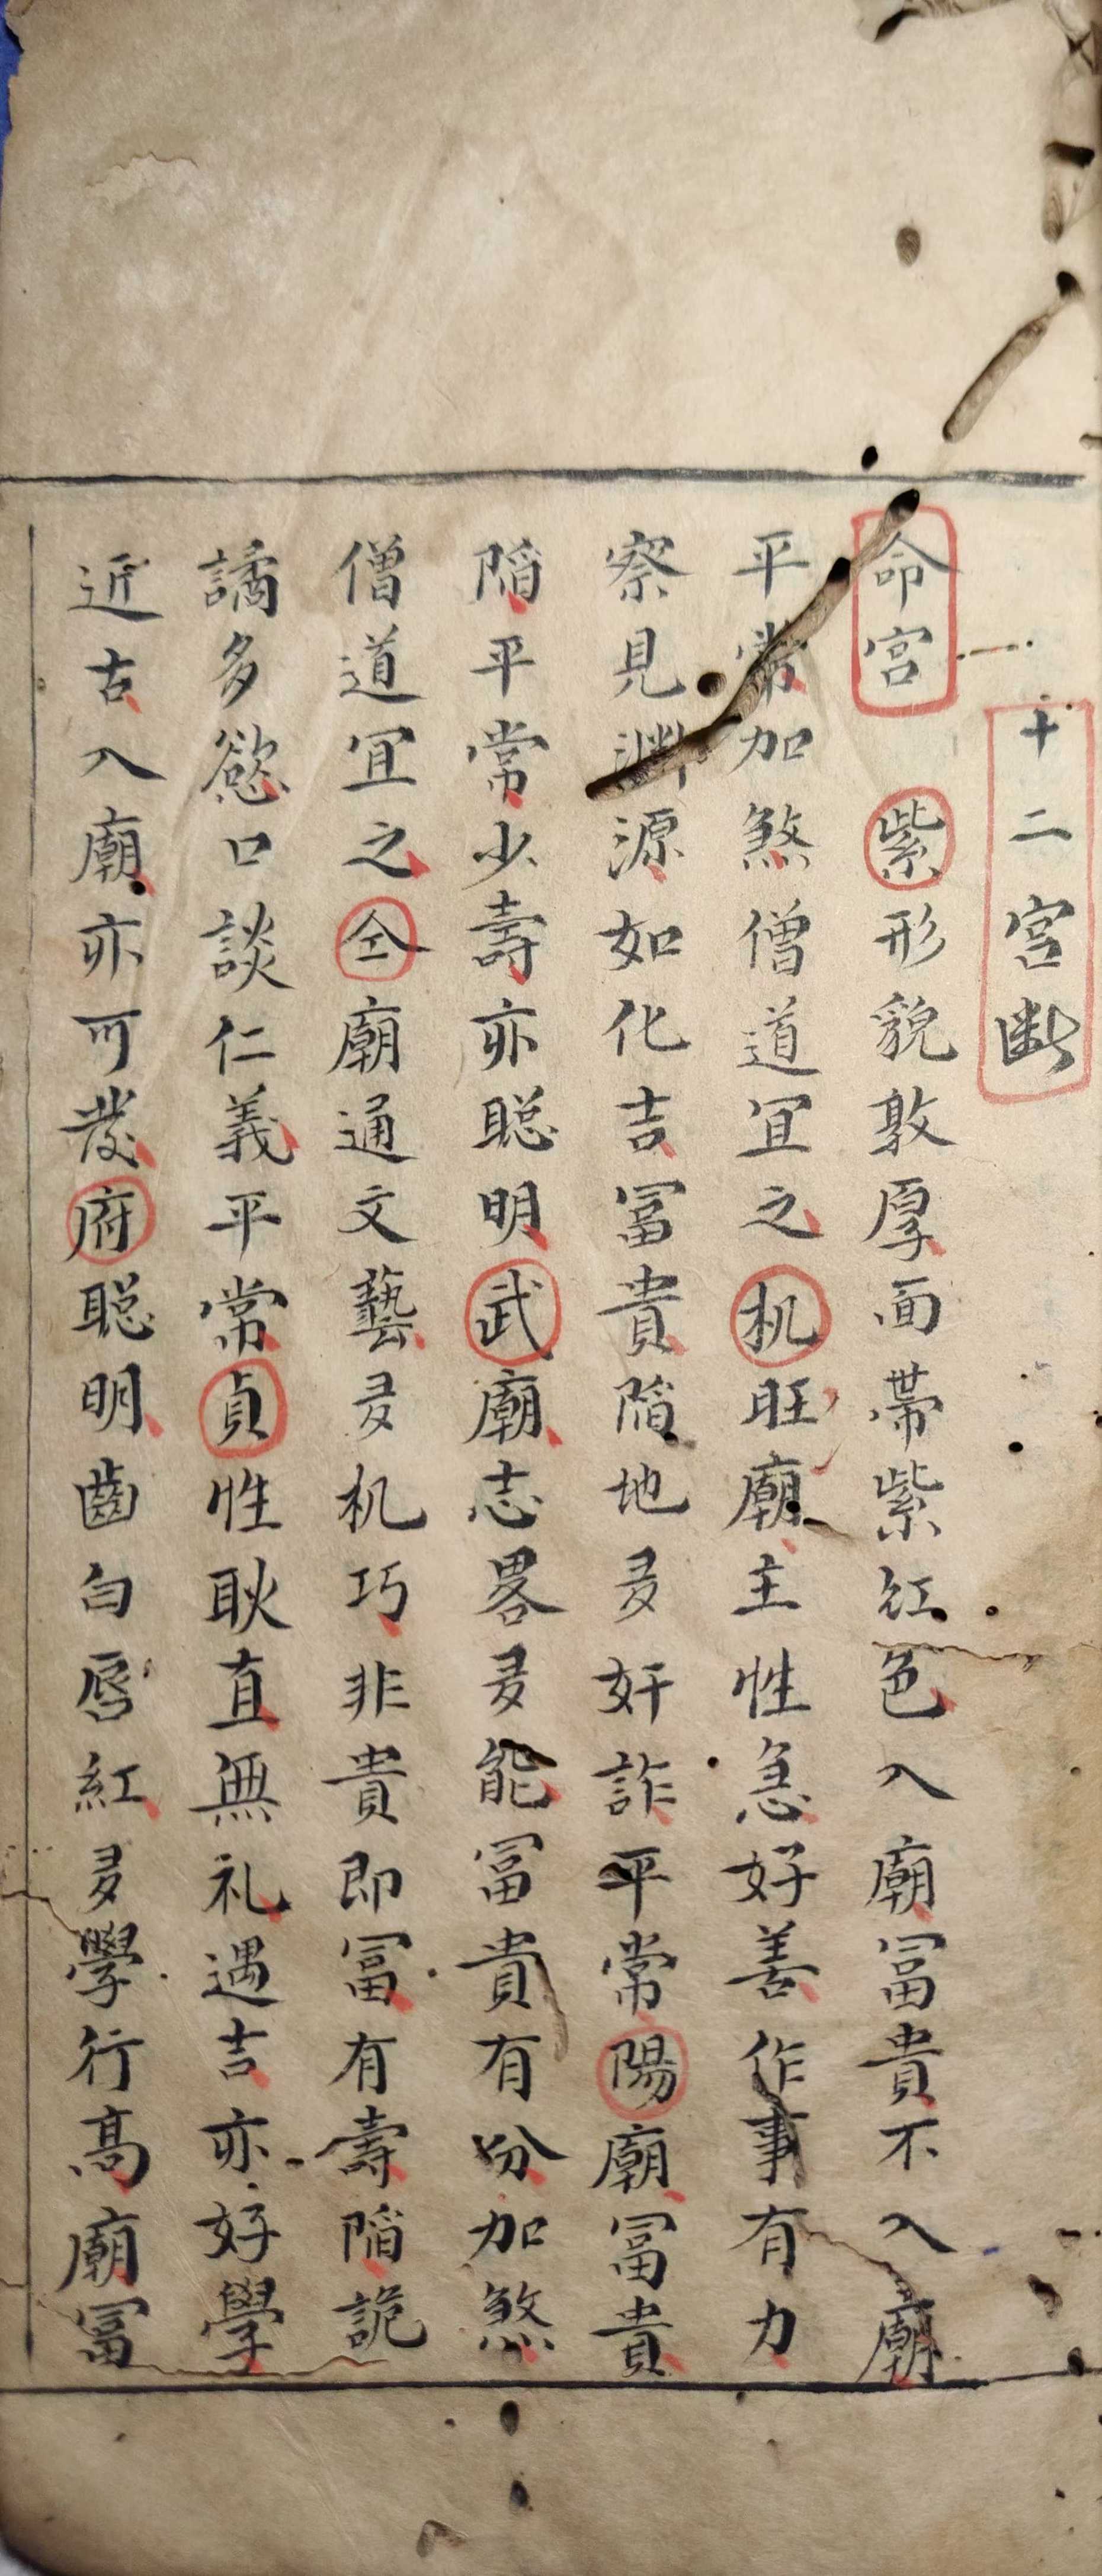 十二宮断
命宮　紫形貌敦厚面帶紫紅色入廟冨貴不入廟
平常加煞僧道冝之机旺廟主性急好善作事有力
察見渊源如化吉冨貴陷地多奸詐平常陽廟冨貴
陷平常少壽亦聡明武廟志畧多能冨貴有份加煞
僧道冝之仝廟通文藝多机巧非貴即冨有壽陷詭
譎多慾口談仁義平常貞性耿直無礼遇吉亦好學
近古入廟亦可發府聡明齒白唇紅多學行高廟冨